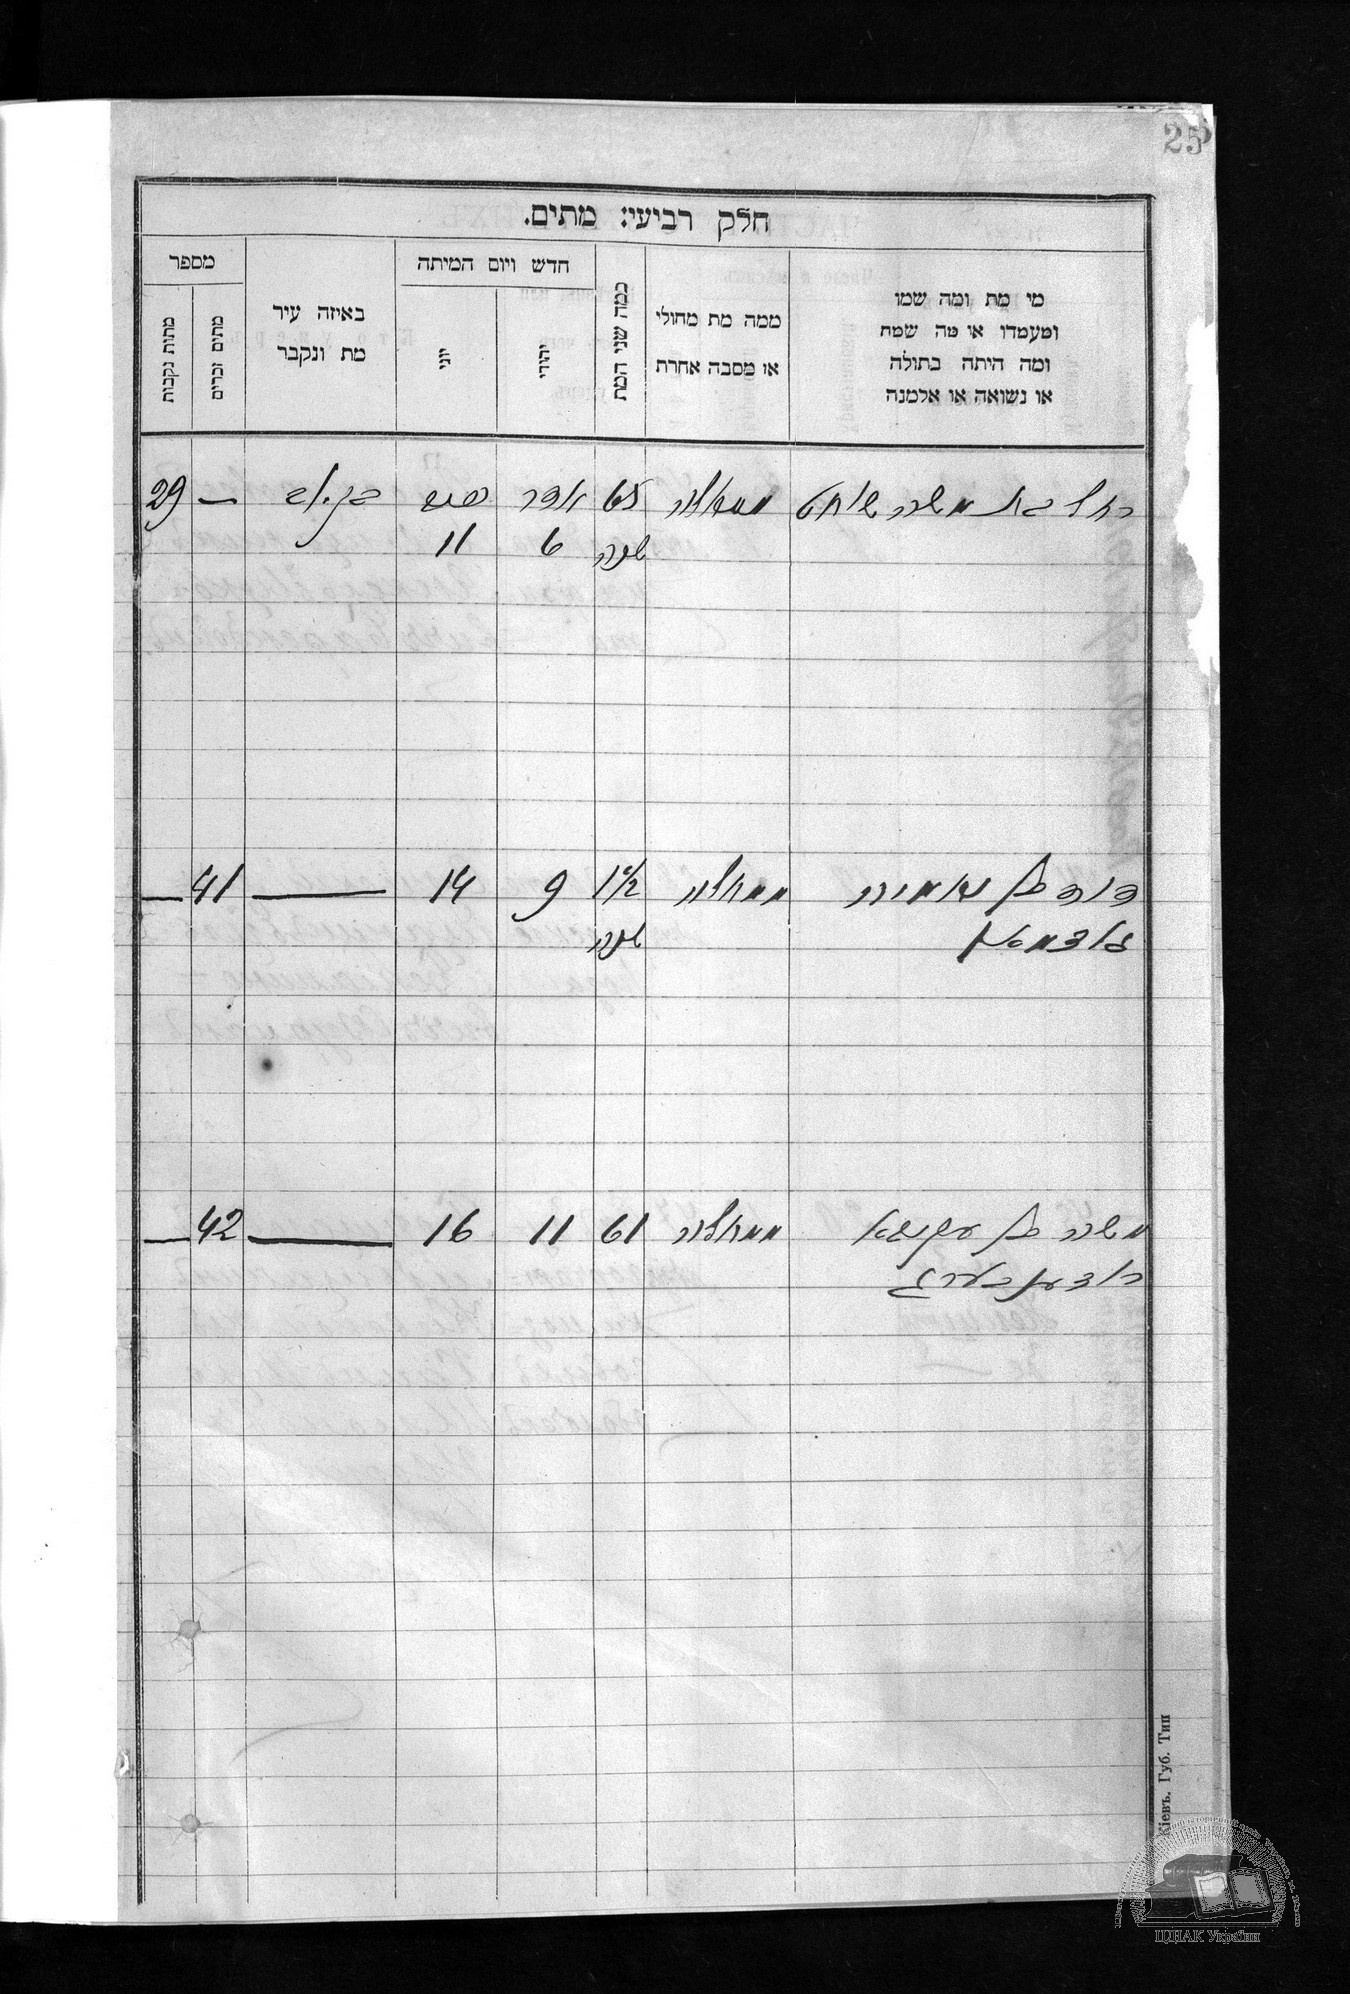 25
חלק רביעי: מתים.
מי מת ומה שמו
ומעמדו או מה שמה
ומה היתה בתולה
או נשואה או אלמנה
ממה מת מחולי
או מסבה אחרת
כמה שני המת
חדש ויום המיתה
יהודי
יוני
באיזה עיר
מת ונקבר
מספר
מתים זכרים
מתות נקבות
רחל בת משה שוחט ממחלה 65 אדר — 29
שנה 6 11
דוד בן ממחלה 1½ 9 14 — 41 —
שנה
משה בן ממחלה 61 11 16 — 42 —
ראזענבערג
Кіевъ. Губ. Тип
ЦДІАК України